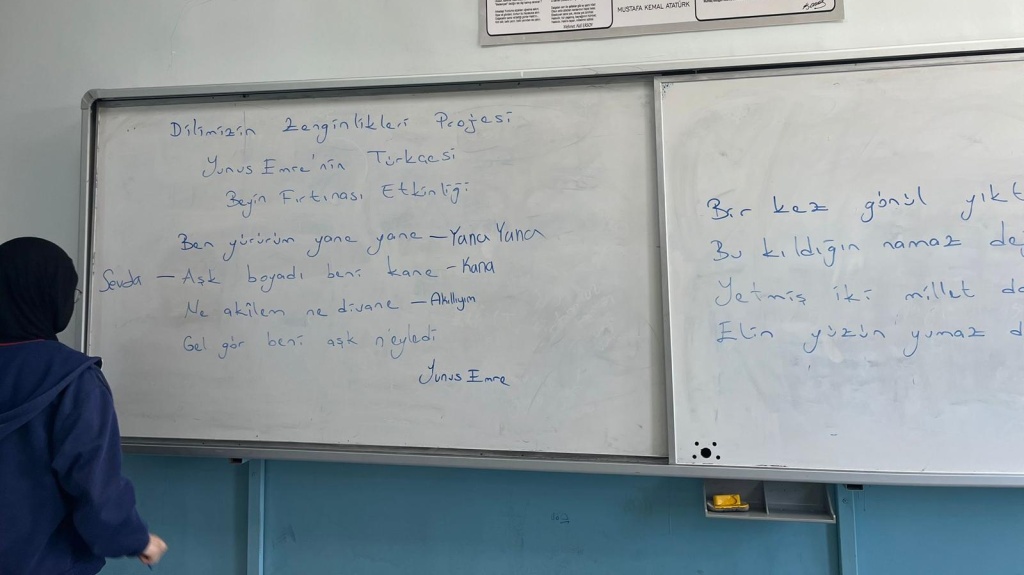 MUSTAFA KEMAL ATATÜRK
Mehmet Akif ERSOY
Dilimizin Zenginlikleri Projesi
Yunus Emre'nin Türkçesi
Beyin Fırtınası Etkinliği
Ben yürürüm yane yane – Yana Yana
Sevda – Aşk boyadı beni kane – Kana
Ne akilem ne divane – Akıllıyım
Gel gör beni aşk n'eyledi
Yunus Emre
Bir kez gönül yıkt
Bu kıldığın namaz değ
Yetmiş iki millet da
Elin yüzün yumaz d